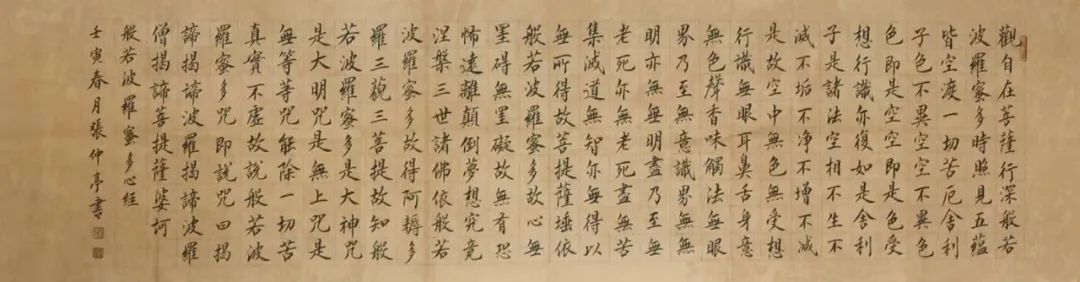 觀自在菩薩行深般若
波羅蜜多時照見五蘊
皆空度一切苦厄舍利
子色不異空空不異色
色即是空空即是色受
想行識亦復如是舍利
子是諸法空相不生不
滅不垢不淨不增不減
是故空中無色無受想
行識無眼耳鼻舌身意
無色聲香味觸法無眼
界乃至無意識界無無
明亦無無明盡乃至無
老死亦無老死盡無苦
集滅道無智亦無得以
無所得故菩提薩埵依
般若波羅蜜多故心無
罣碍無罣礙故無有恐
怖遠離顛倒夢想究竟
涅槃三世諸佛依般若
波羅蜜多故得阿耨多
羅三藐三菩提故知般
若波羅蜜多是大神咒
是大明咒是無上咒是
無等等咒能除一切苦
真實不虛故說般若波
羅蜜多咒即說咒曰揭
諦揭諦波羅揭諦波羅
僧揭諦菩提薩婆訶
般若波羅蜜多心經
壬寅春月張仲亭書